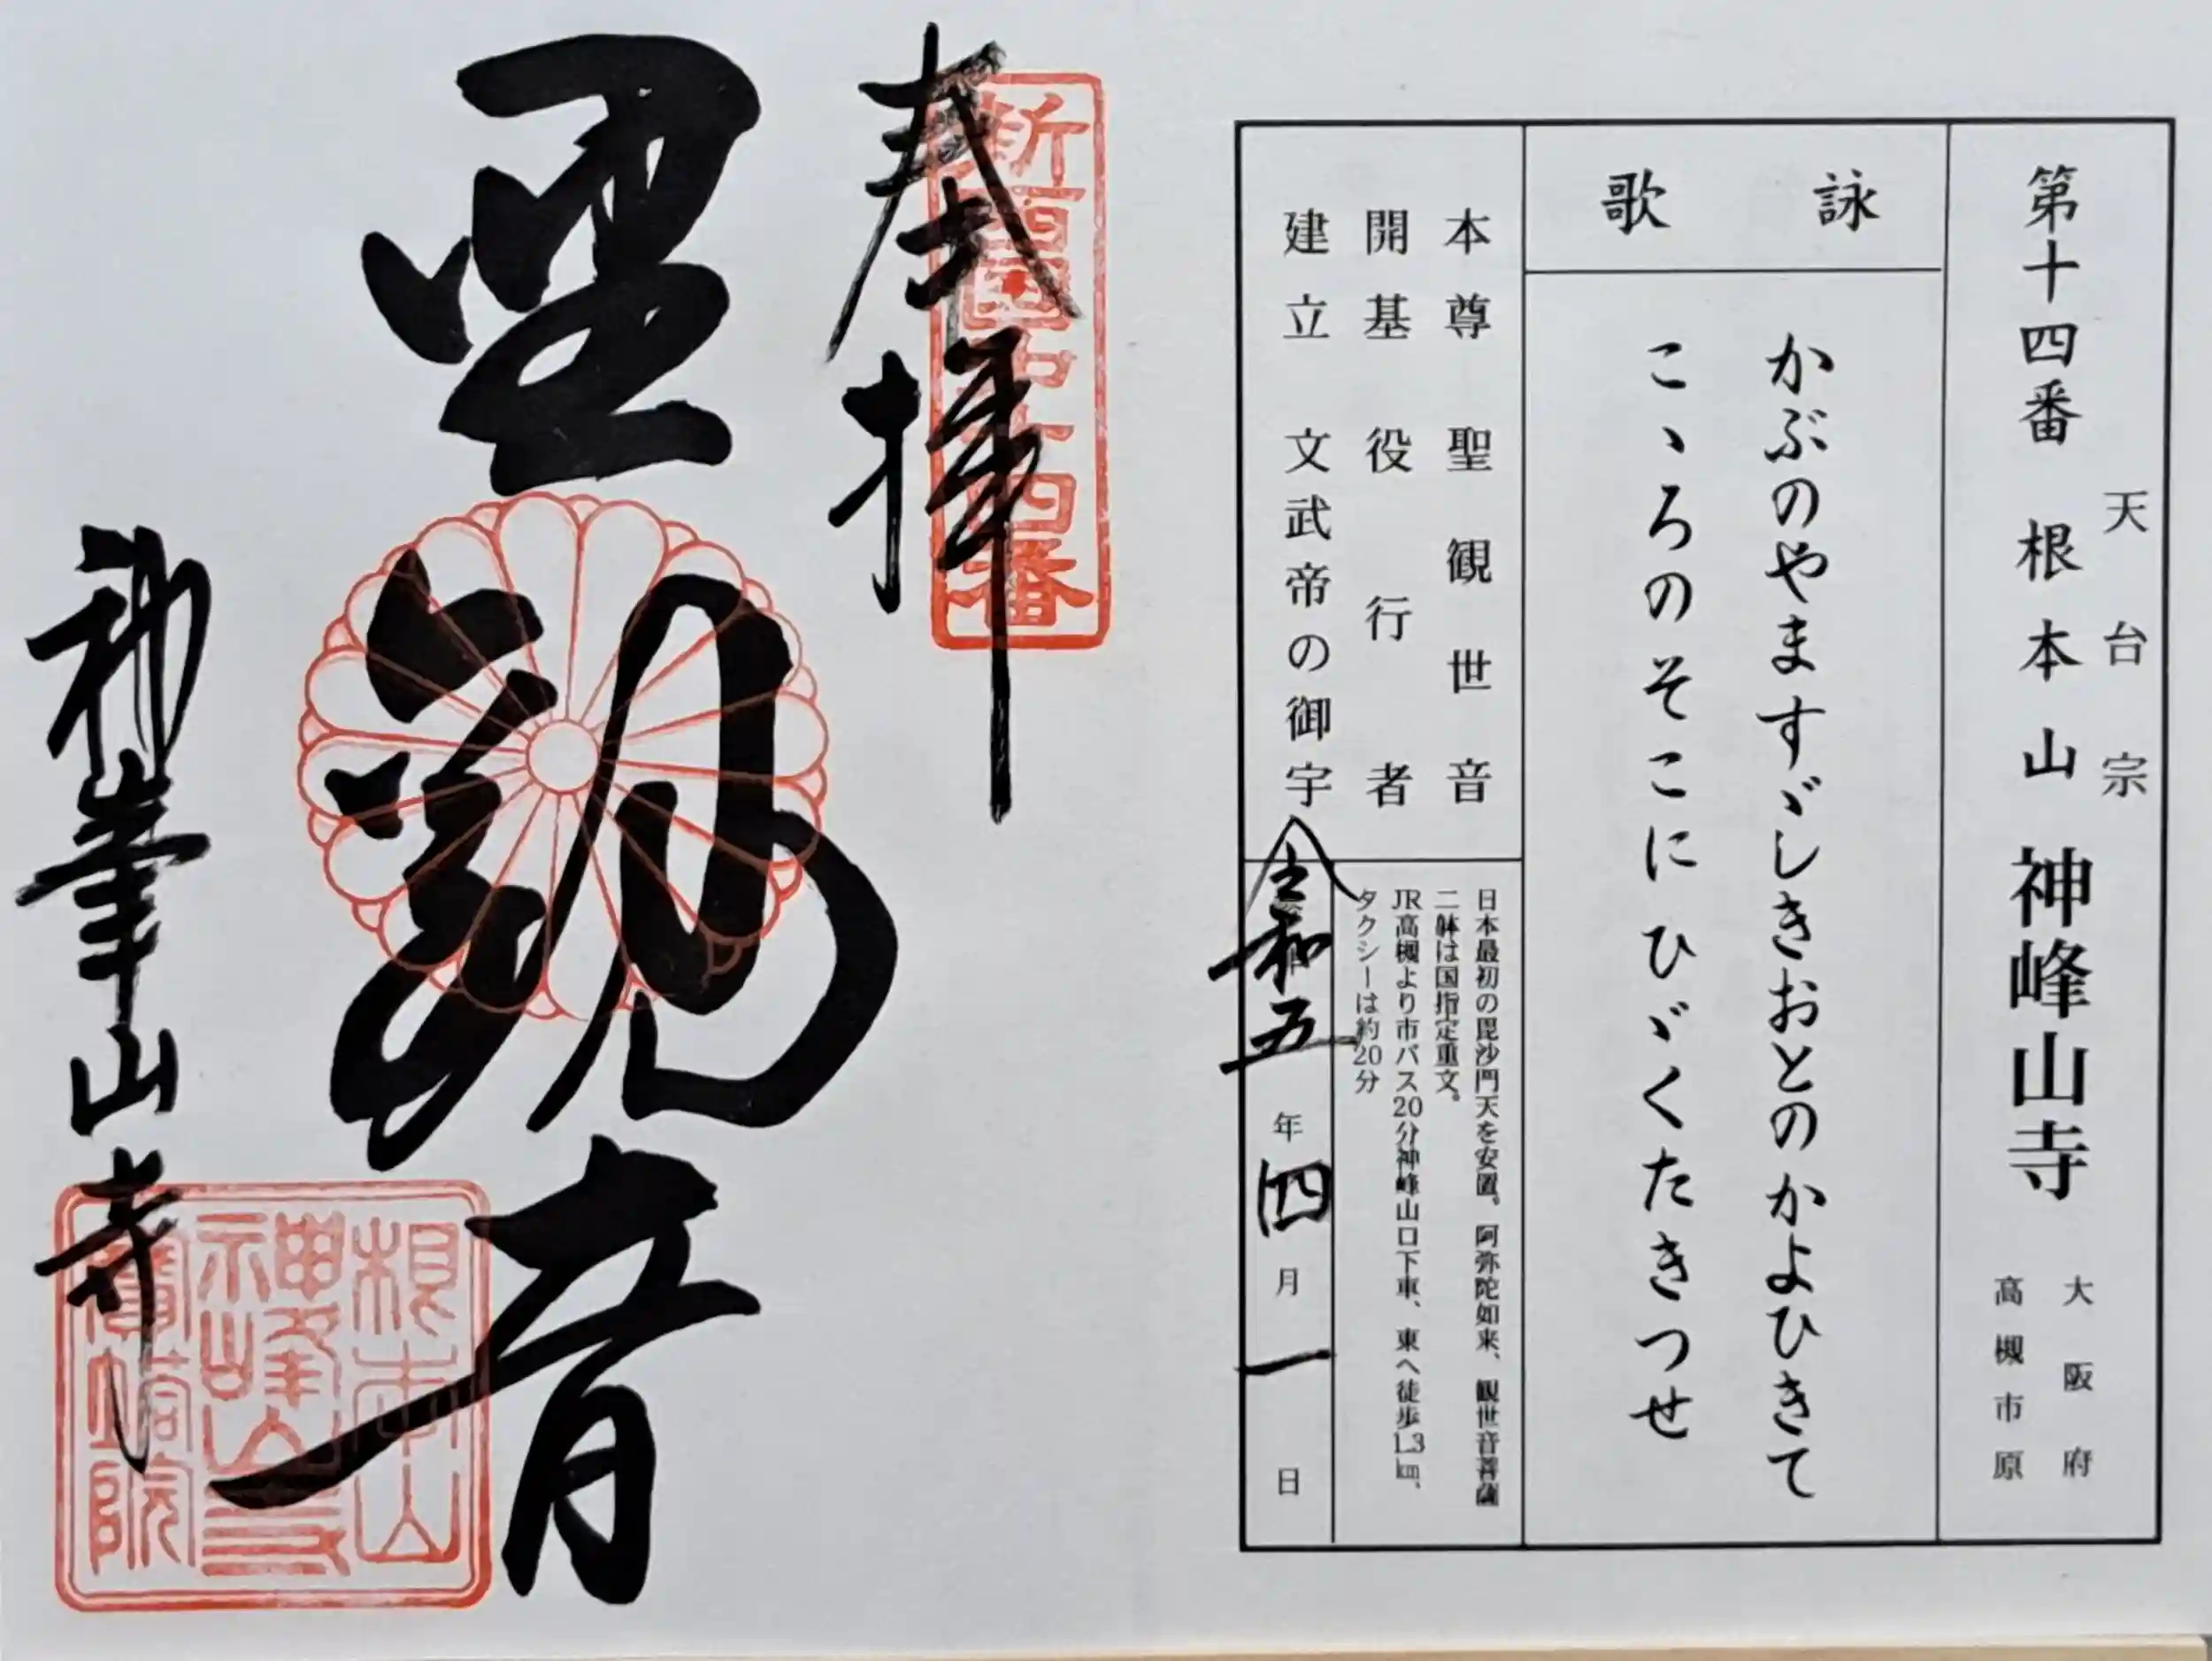 天台宗
第十四番 根本山 神峰山寺
大阪府
高槻市原
詠歌
かぶのやますゞしきおとのかよひきて
こゝろのそこにひゞくたきつせ
本尊 聖観世音
開基 役行者
建立 文武帝の御宇
日本最初の毘沙門天を安置。阿弥陀如来、観世音菩薩
二躰は国指定重文。
JR高槻より市バス20分神峰山口下車、東へ徒歩1.3㎞、
タクシーは約20分
令和五年四月一日
新西国第十四番
奉拝
聖観音
神峯山寺
根本山
神峰山寺
寶塔院